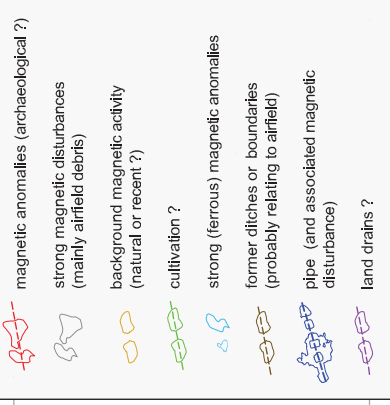 magnetic anomalies (archaeological ?)
strong magnetic disturbances
(mainly airfield debris)
background magnetic activity
(natural or recent ?)
cultivation ?
strong (ferrous) magnetic anomalies
former ditches or boundaries
(probably relating to airfield)
pipe (and associated magnetic
disturbance)
land drains ?